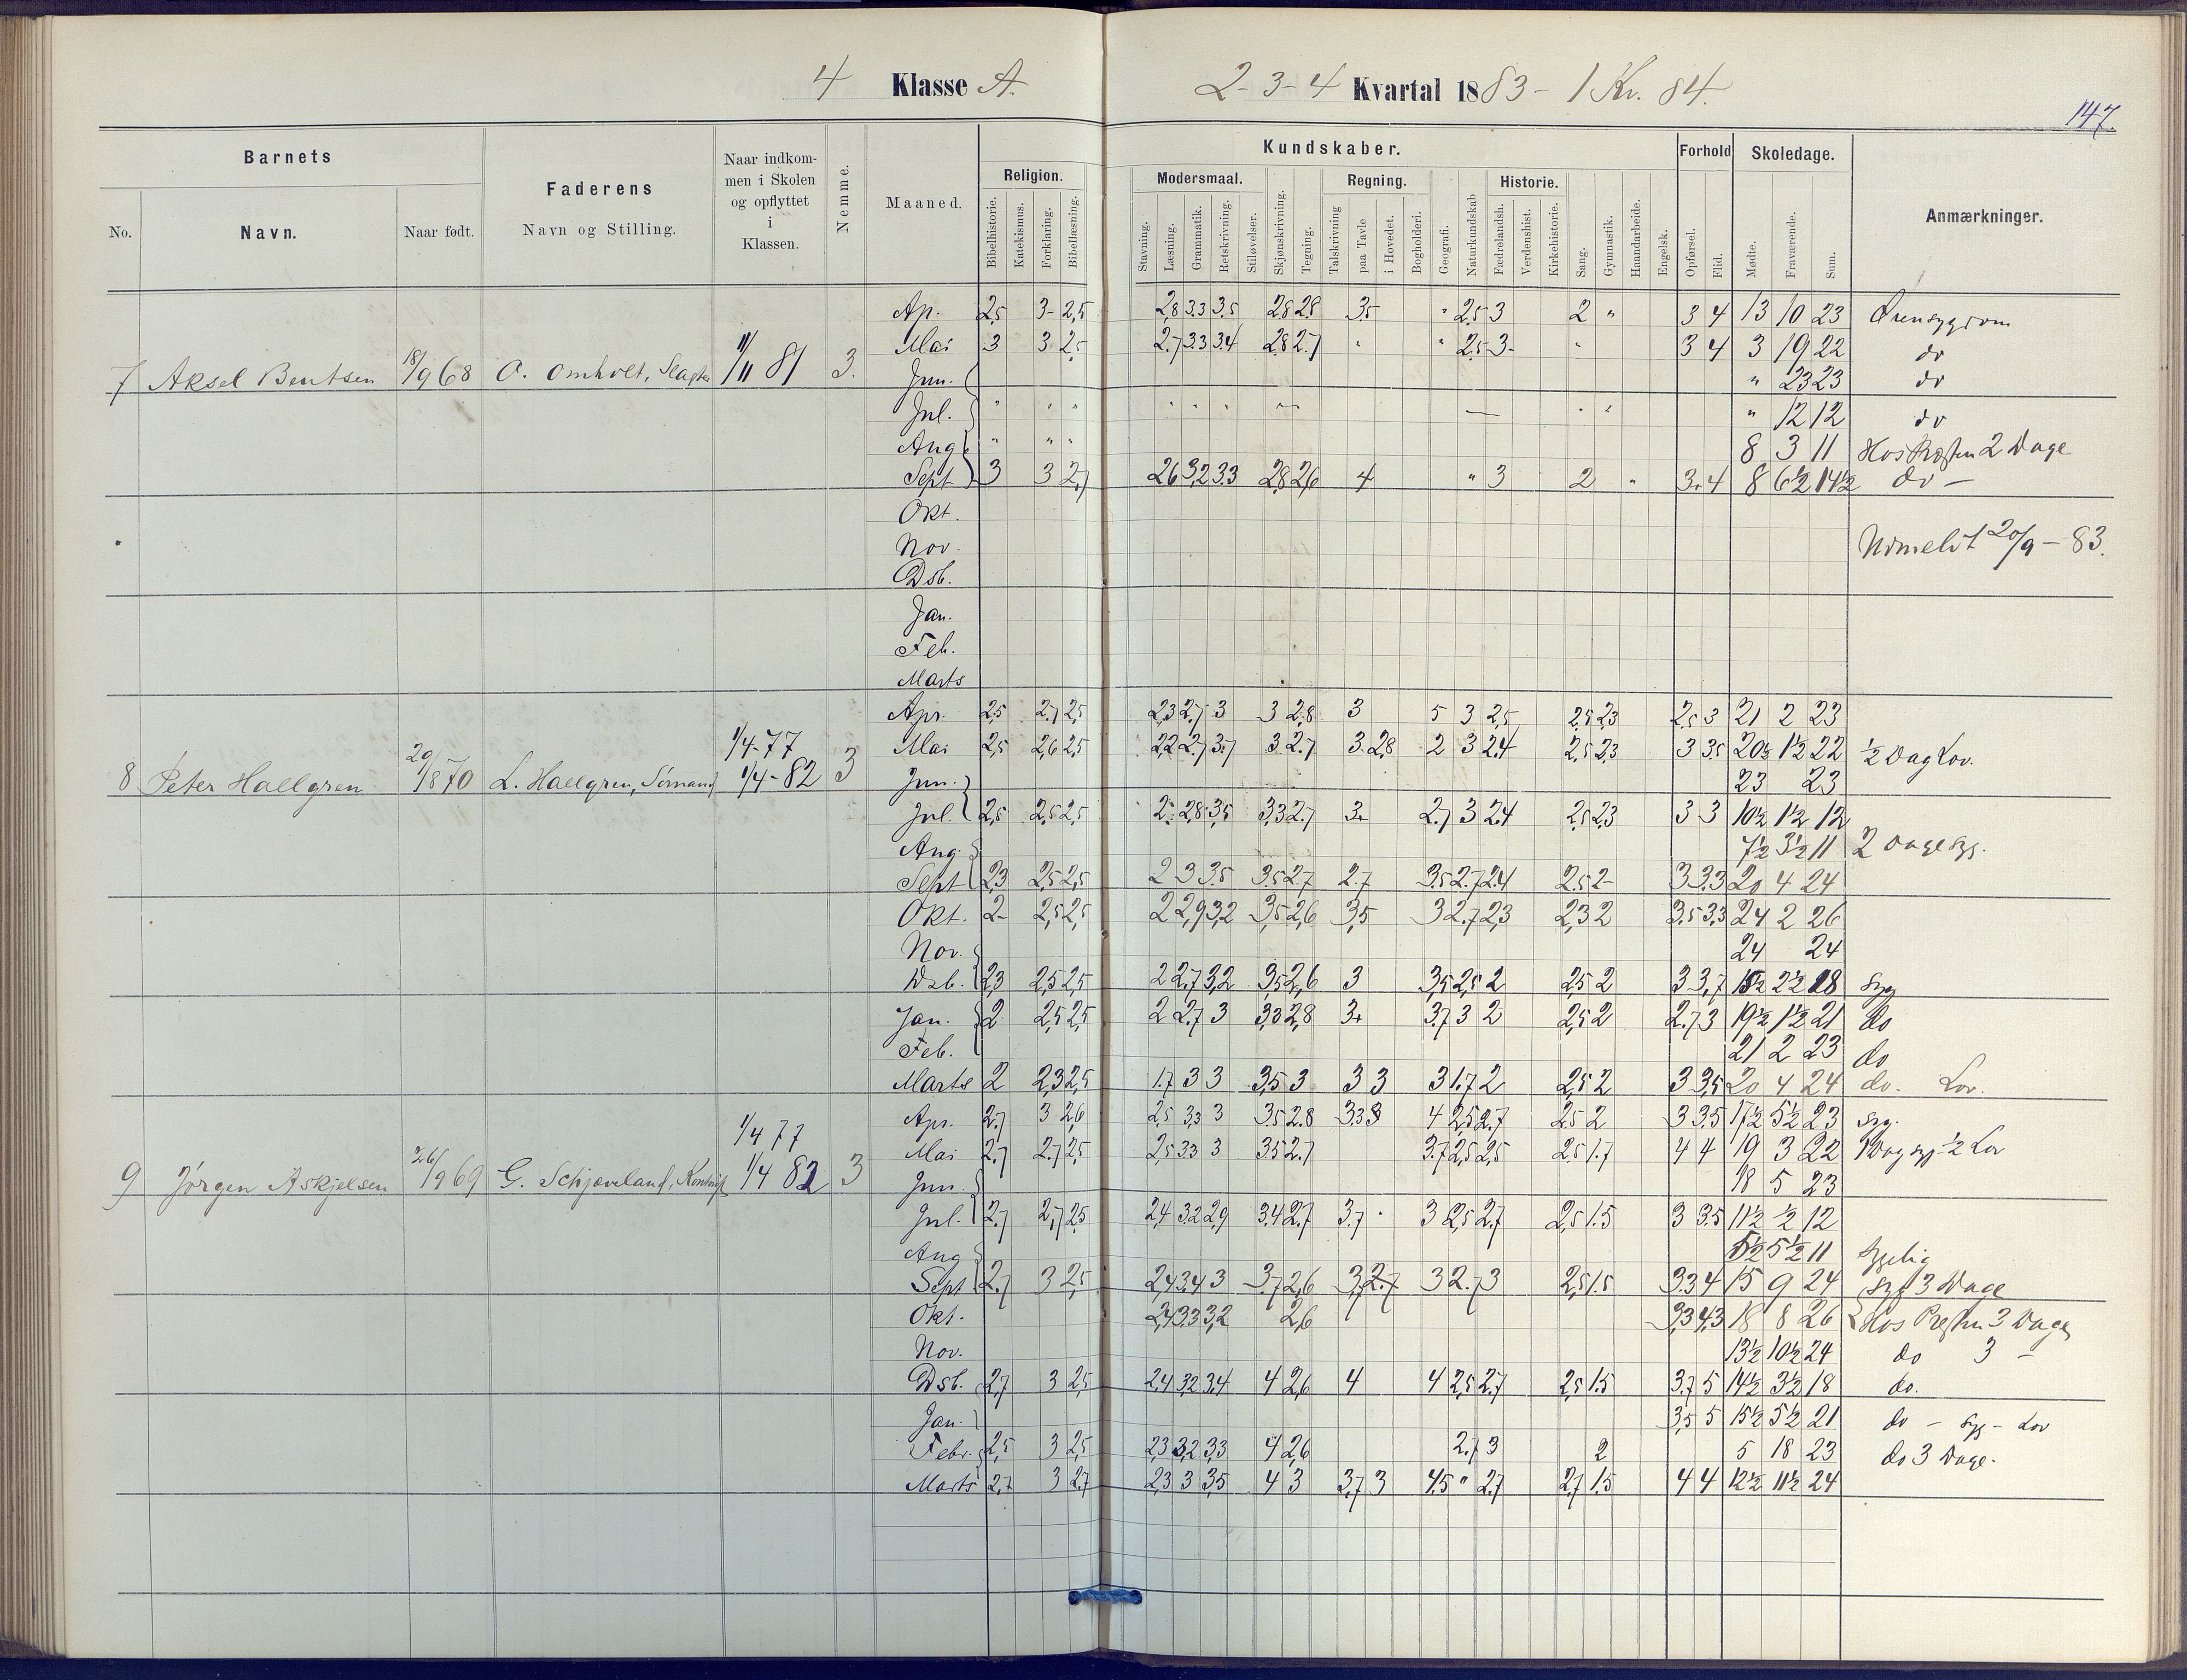 4 Klasse A.
2-3-4 Kvartal 1883 - 1 Kv. 84.
147.
Barnets
No.
Navn.
Naar født.
Faderens
Navn og Stilling.
Naar indkom-
men i Skolen
og opflyttet
i
Klassen.
Nemme.
Maaned.
Kundskaber.
Religion.
Bibelhistorie.
Katekismus.
Forklaring.
Bibellæsning.
Modersmaal.
Stavning.
Læsning.
Grammatik.
Retskrivning.
Stiløvelser.
Skjønskrivning.
Tegning.
Regning.
Talskrivning
paa Tavle
i Hovedet.
Bogholderi.
Geografi.
Naturkundskab
Historie.
Fædrelandsh.
Verdenshist.
Kirkehistorie.
Sang.
Gymnastik.
Haandarbeide.
Engelsk.
Forhold
Opførsel.
Flid.
Skoledage.
Mødte.
Fraværende.
Sum.
Anmærkninger.
7 Aksel Bentsen 18/9 68 O. Omholt, Slagter 1/11 81 3.
Ap. 2,5 3- 2,5 2,8 3.3 3.5 2.8 2.8 3.5 " 2.5 3 2 " 3 4 13 10 23
Mai 3 3 2,5 2.7 3.3 3.4 2.8 2.7 " " 2.5 3- " 3 4 3 19 22 do
Jun. " 23 23 do
Jul. " 12 12 do
Aug 8 3 11 Hos Præsten 2 Dage
Sept 3 3 2,7 2,6 3,2 3.3 2,8 2,6 4 " 3 2 " 3.4 8 6½ 14½ do —
Okt.
Nov. Udmeldt 20/9 - 83.
Dsb.
Jan.
Feb.
Marts
8 Peter Hallgren 20/8 70 L. Hallgren, Sømand 1/4-77 1/4-82 3
Apr. 2,5 2.7 2,5 2,3 2.7 3 3 2.8 3 5 3 2,5 2.5 2,3 2.5 3 21 2 23
Mai 2,5 2,6 2,5 2,2 2.7 3.7 3 2.7 3 2,8 2 3 2.4 2.5 2,3 3 3.5 20½ 1½ 22 ½ Dag Lov.
Jun. 23 23
Jul. 2,5 2,5 2,5 2 2,8 3,5 3,3 2.7 3 2.7 3 2.4 2,5 2,3 3 3 10½ 1½ 12
Aug. 7½ 3½ 11 2 Dage syg.
Sept 2,3 2,5 2,5 2 3 3.5 3.5 2.7 2.7 3.5 2.7 2.4 2.5 2- 3 3,3 20 4 24
Okt. 2- 2,5 2,5 2 2,9 3,2 3,5 2,6 3,5 3 2.7 2,3 2,3 2 3.5 3,3 24 2 26
Nov. 24 24
Dsb. 2,3 2,5 2,5 2 2.7 3,2 3,5 2,6 3 3,5 2,5 2 2,5 2 3 3,7 15½ 2½ 18 syg
Jan. 2 2,5 2,5 2 2.7 3 3,3 2,8 3 3.7 3 2 2,5 2 2.7 3 19½ 1½ 21 do
Feb. 21 2 23 do
Marts 2 2,3 2,5 1.7 3 3 3,5 3 3 3 3 1.7 2 2,5 2 3 3,5 20 4 24 do. Lov.
9 Jørgen Askjelsen 26/9 69 G. Schjæveland, 1/4 77 1/4 82 3
Apr. 2.7 3 2,6 2,5 3,3 3 3.5 2.8 3.3 3 4 2,5 2.7 2.5 2 3 3.5 17½ 5½ 23 syg.
Mai 2.7 2.7 2,5 2,5 3.3 3 3.5 2.7 3.7 2,5 2,5 2.5 1.7 4 4 19 3 22 1 Dag syg ½ Lov
Jun. 18 5 23
Jul. 2.7 2,7 2,5 2,4 3.2 2,9 3.4 2.7 3.7 3 2,5 2.7 2,5 1.5 3 3.5 11½ ½ 12
Aug 5½ 5½ 11 Sygelig
Sept 2.7 3 2,5 2,4 3.4 3 3.7 2,6 3,7 2.7 3 2.7 3 2,5 1.5 3.3 4 15 9 24 syg 3 Dage
Okt. 2,4 3.3 3,2 2,6 3,3 4,3 18 8 26 Hos Præsten 3 Dage
Nov. 13½ 10½ 24 do 3 —
Dsb. 2,7 3 2,5 2,4 3,2 3,4 4 2,6 4 4 2,5 2.7 2,5 1.5 3.7 5 14½ 3½ 18 do.
Jan. 3,5 5 15½ 5½ 21 do — syg — Lov
Febr. 2,5 3 2,5 2,3 3,2 3,3 4 2,6 2.7 3 2 5 18 23 do 3 Dage.
Marts 2,7 3 2.7 2,3 3 3,5 4 3 3,7 3 4,5 " 2.7 2,7 1.5 4 4 12½ 11½ 24